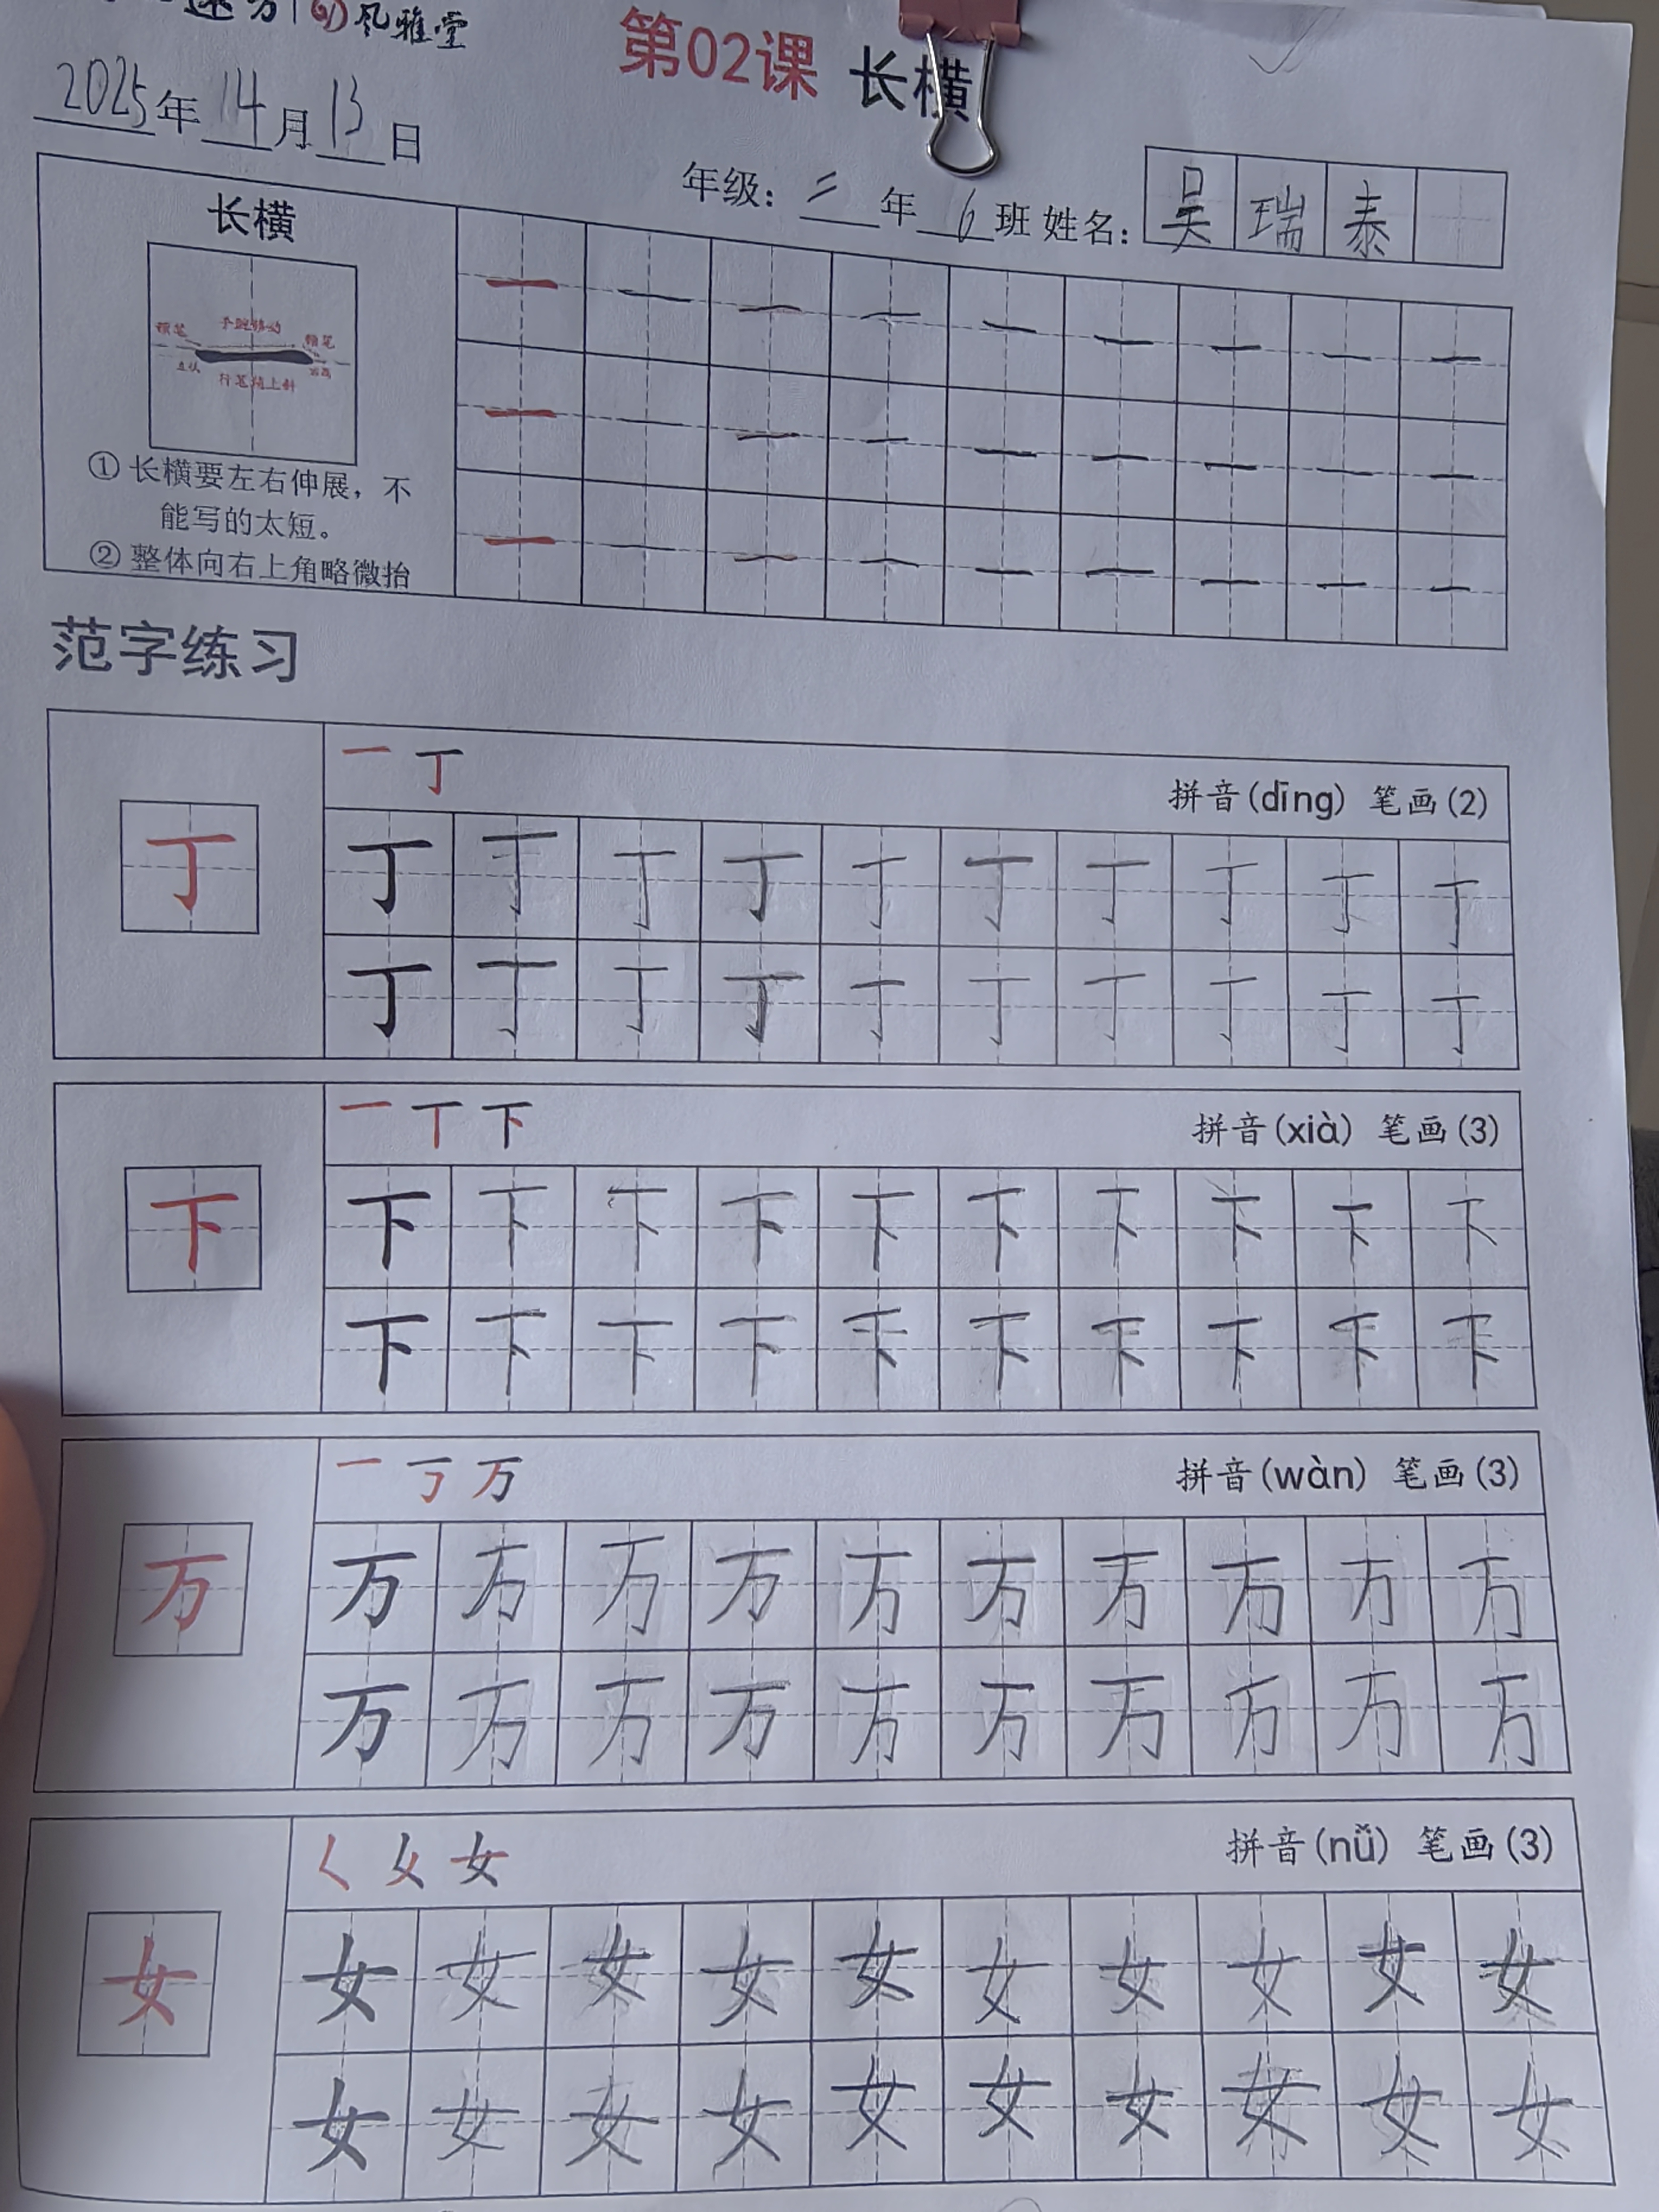 速 方 风雅堂
第02课 长横
2025年 14月 13日
年级：二年 6班 姓名：吴瑞泰
长横
顿笔 手腕移动 顿笔
行笔稍上斜
① 长横要左右伸展，不
能写的太短。
② 整体向右上角略微抬
一 一 一 一 一 一 一 一 一
一 一 一 一 一 一 一 一 一
一 一 一 一 一 一 一 一 一
范字练习
一 丁
拼音(dīng) 笔画(2)
丁
丁 丁 丁 丁 丁 丁 丁 丁 丁 丁
丁 丁 丁 丁 丁 丁 丁 丁 丁 丁
一 丅 下
拼音(xià) 笔画(3)
下
下 下 下 下 下 下 下 下 下 下
下 下 下 下 下 下 下 下 下 下
一 丆 万
拼音(wàn) 笔画(3)
万
万 万 万 万 万 万 万 万 万 万
万 万 万 万 万 万 万 万 万 万
く 女 女
拼音(nǚ) 笔画(3)
女
女 女 女 女 女 女 女 女 女 女
女 女 女 女 女 女 女 女 女 女